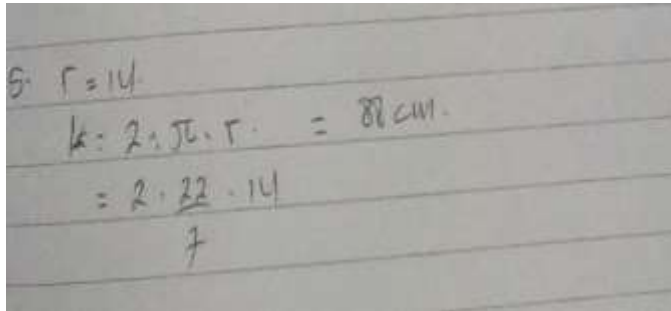 5. r = 14.
k : 2 . π . r . = 88 cm.
= 2 . 22/7 . 14